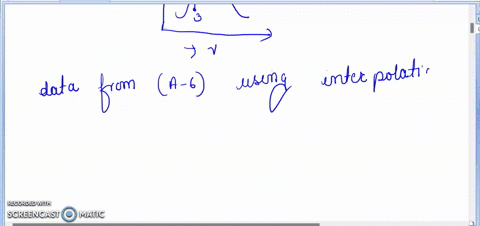 3
→ v
data from (A-6) using interpolati
RECORDED WITH
SCREENCAST MATIC